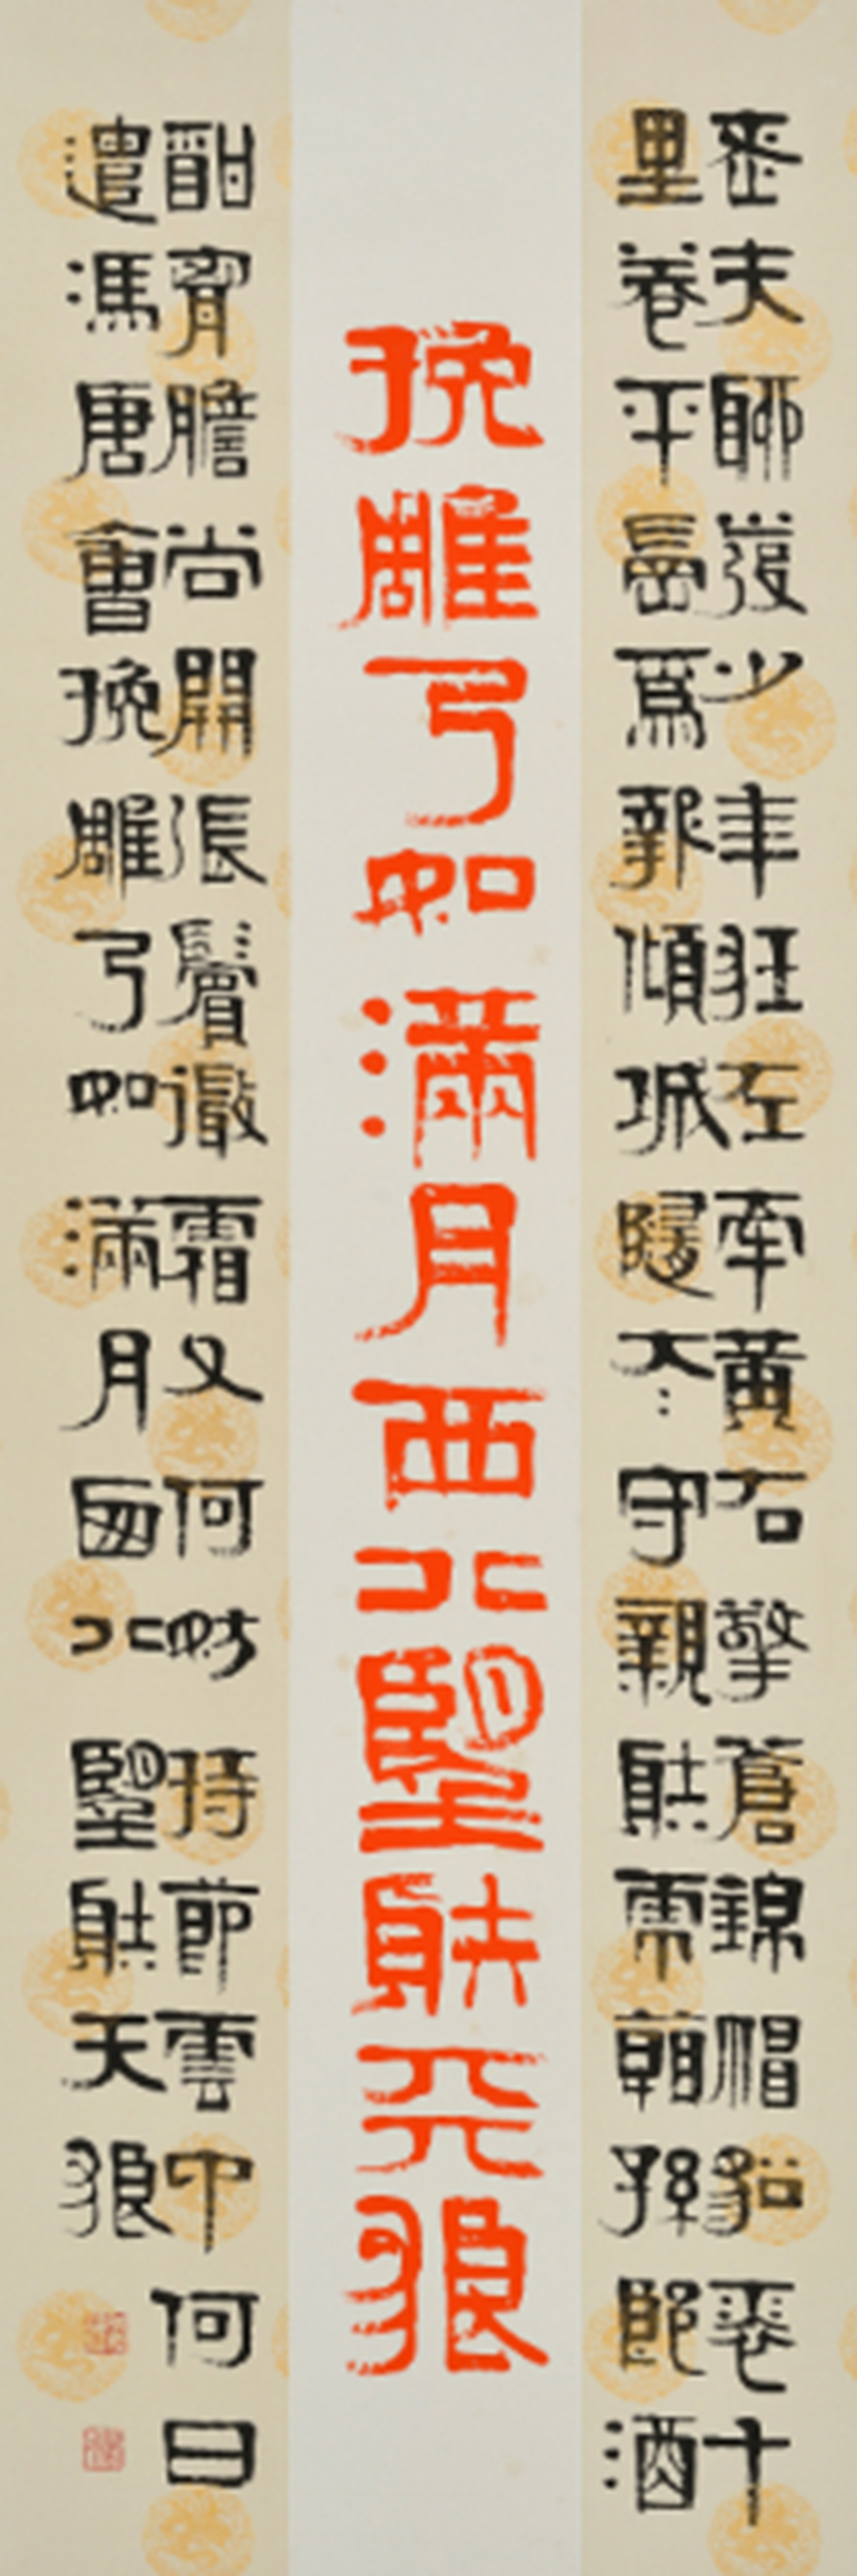 挽雕弓如滿月西北望射天狼
老夫聊發少年狂左牽黃右擎蒼錦帽貂裘千
里卷平岡為報傾城隨太守親射虎看孫郎酒
酣胸膽尚開張鬢微霜又何妨持節雲中何日
遣馮唐會挽雕弓如滿月西北望射天狼